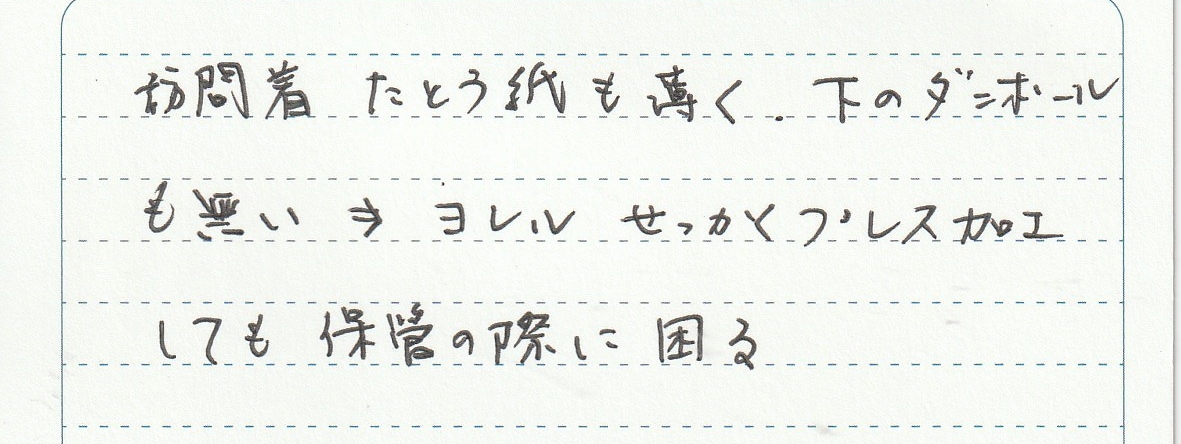 訪問着 たとう紙も薄く. 下のダンボール
も無い ⇒ ヨレル せっかくプレス加工
しても 保管の際に 困る